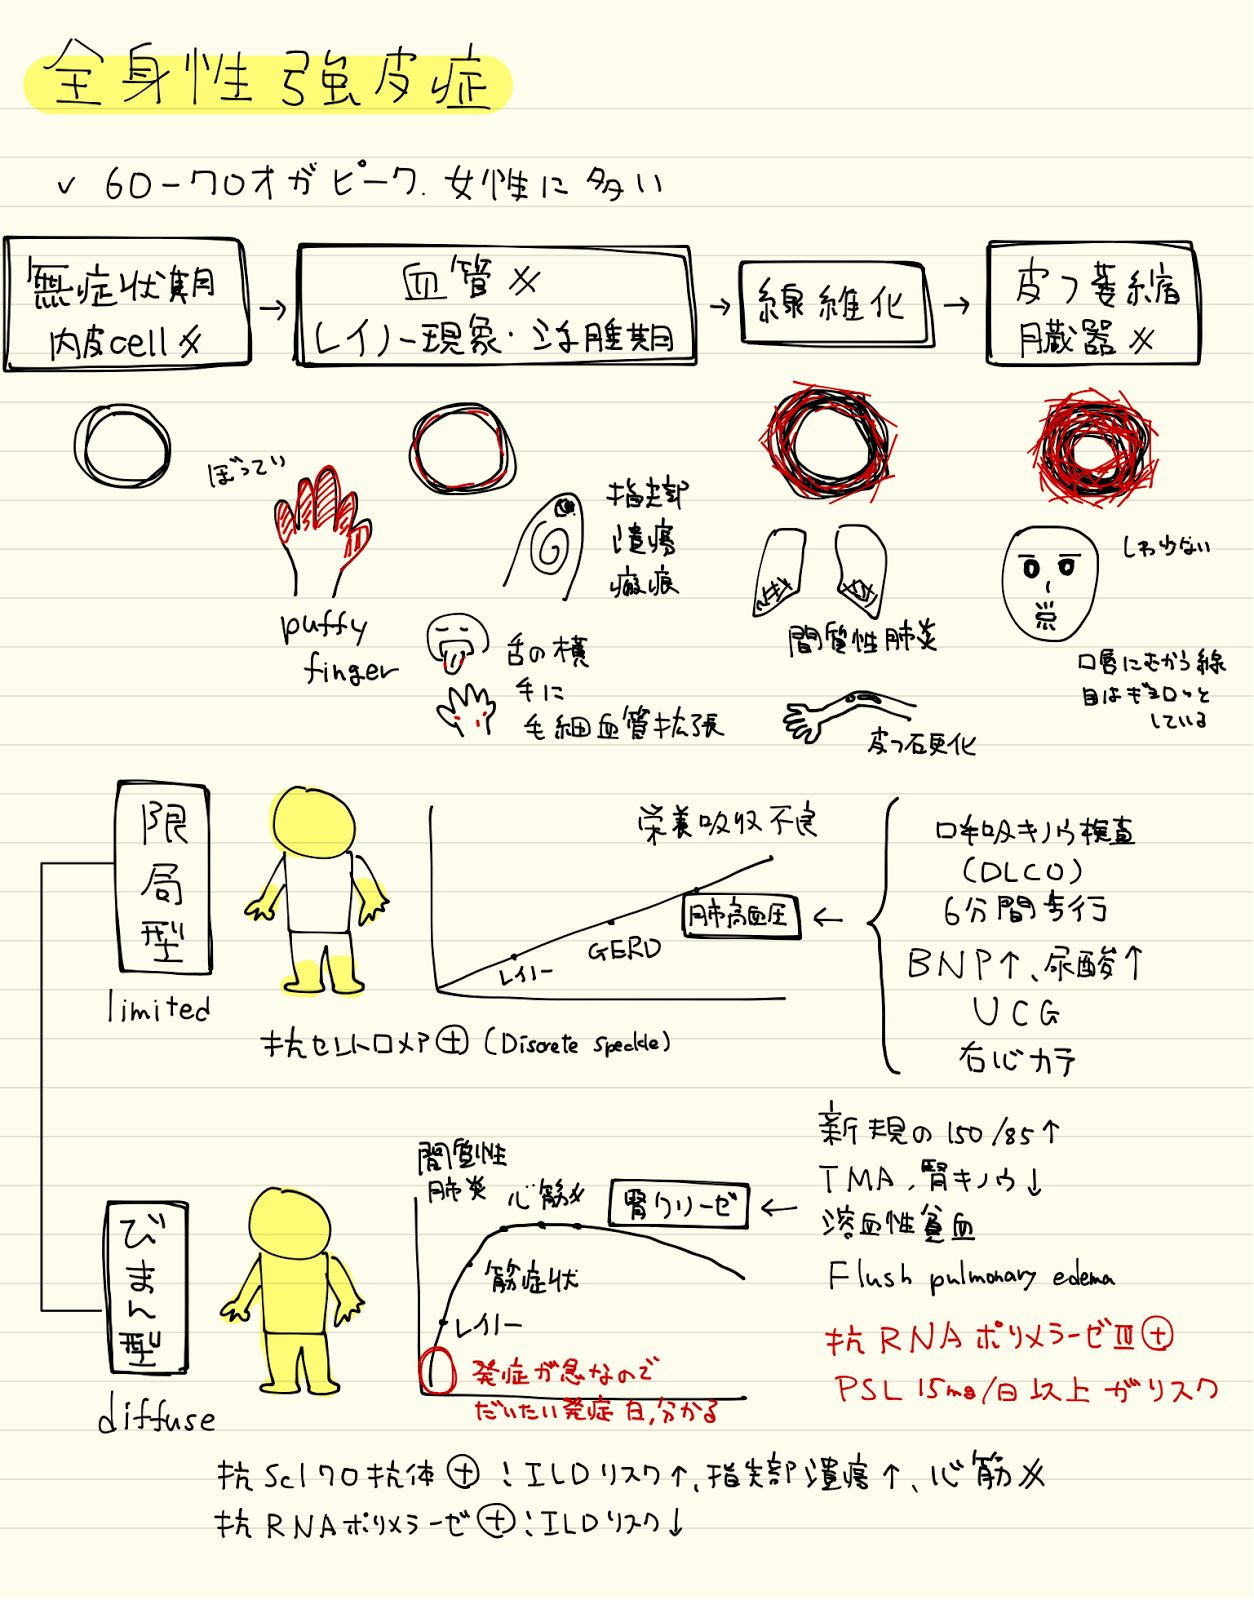 全身性強皮症
✓ 60-70才がピーク. 女性に多い
無症状期
内皮cell✗
→
血管✗
レイノー現象・浮腫期
→
線維化
→
皮フ萎縮
臓器✗
ぼってり
puffy
finger
指尖部
潰瘍
瘢痕
舌の横
手に
毛細血管拡張
間質性肺炎
皮フ石更化
しわ少ない
口唇にむかう線
目はギョロッと
している
限局型
limited
栄養吸収不良
肺高血圧
GERD
レイノー
←
呼吸キノウ検査
(DLCO)
6分間歩行
BNP↑、尿酸↑
UCG
右心カテ
抗セントロメア⊕ (Discrete speckle)
びまん型
diffuse
間質性
肺炎
心筋✗
腎クリーゼ
←
筋症状
レイノー
発症が急なので
だいたい発症日,分かる
新規の150/85↑
TMA, 腎キノウ↓
溶血性貧血
Flush pulmonary edema
抗RNAポリメラーゼⅢ⊕
PSL 15mg/日以上がリスク
抗Scl 70抗体⊕：ILDリスク↑、指尖部潰瘍↑、心筋✗
抗RNAポリメラーゼ⊕：ILDリスク↓